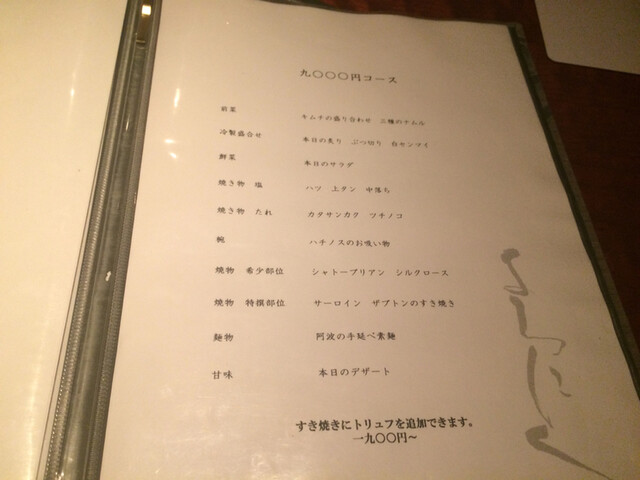 九〇〇〇円コース
前菜 キムチの盛り合わせ 三種のナムル
冷製盛合せ 本日の炙り ぶつ切り 白センマイ
鮮菜 本日のサラダ
焼き物 塩 ハツ 上タン 中落ち
焼き物 たれ カタサンカク ツチノコ
椀 ハチノスのお吸い物
焼物 希少部位 シャトーブリアン シルクロース
焼物 特撰部位 サーロイン ザブトンのすき焼き
麺物 阿波の手延べ素麺
甘味 本日のデザート
すき焼きにトリュフを追加できます。
一九〇〇円～
よろにく